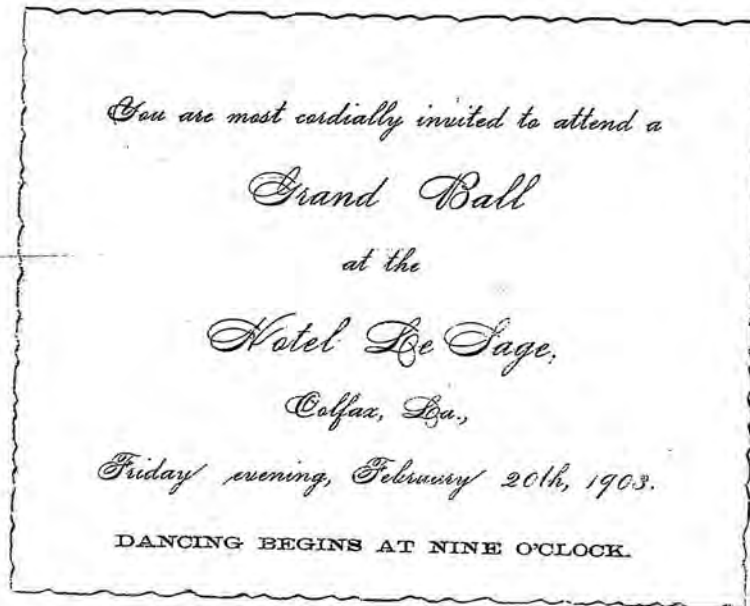 You are most cordially invited to attend a
Grand Ball
at the
Hotel Le Sage,
Colfax, La.,
Friday evening, February 20th, 1903.
DANCING BEGINS AT NINE O'CLOCK.